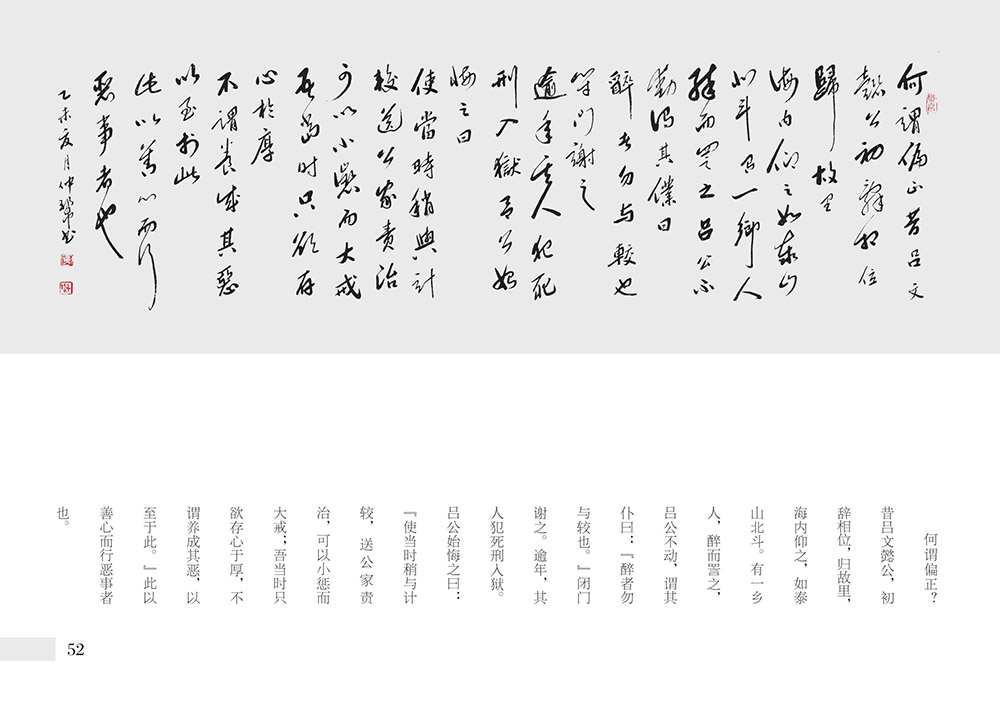 何谓偏正昔吕文
懿公初辞相位
歸故里
海内仰之如泰山
北斗有一鄉人
醉而詈之吕公不
動谓其僕曰
醉者勿与較也
闭门謝之
逾年其人犯死
刑入獄吕公始
悔之曰
使當時稍與计
較送公家责治
可以小惩而大戒
吾當时只欲存
心於厚
不谓养成其惡
以至於此
此以善心而行
惡事者也
乙未夏月仲瑞书
何谓偏正？
昔吕文懿公，初
辞相位，归故里，
海内仰之，如泰
山北斗。有一乡
人，醉而詈之，
吕公不动，谓其
仆曰：『醉者勿
与较也。』闭门
谢之。逾年，其
人犯死刑入狱。
吕公始悔之曰：
『使当时稍与计
较，送公家责
治，可以小惩而
大戒；吾当时只
欲存心于厚，不
谓养成其恶，以
至于此。』此以
善心而行恶事者
也。
52